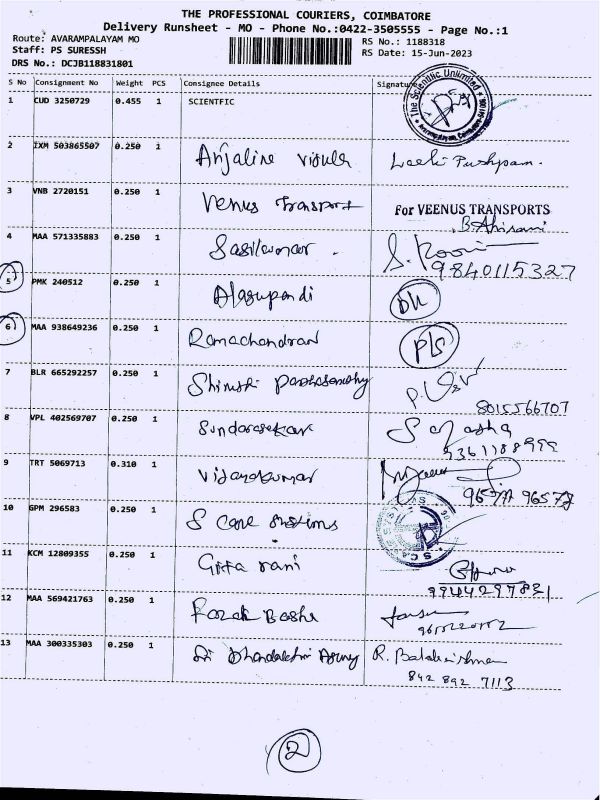 THE PROFESSIONAL COURIERS, COIMBATORE
Delivery Runsheet - MO - Phone No.:0422-3505555 - Page No.:1
Route: AVARAMPALAYAM MO RS No.: 1188318
Staff: PS SURESSH RS Date: 15-Jun-2023
DRS No.: DCJB118831801
S No Consignment No Weight PCS Consignee Details Signature
The Scientific Unlimited
1 CUD 3250729 0.455 1 SCIENTFIC
2 IXM 503865507 0.250 1 Anjaline Pushpam.
3 VNB 2720151 0.250 1 Venus Transport For VEENUS TRANSPORTS
4 MAA 571335883 0.250 1 Sasikumar
9840115327
5 PMK 240512 0.250 1 Alagupandi
6 MAA 938649236 0.250 1 Ramachandran
7 BLR 665292257 0.250 1
8015566707
8 VPL 402569707 0.250 1 Sundarasekar
9 TRT 5069713 0.310 1 Vijayakumar
10 GPM 296583 0.250 1 S Cane Systems
11 KCM 12809355 0.250 1 Gita rani
12 MAA 569421763 0.250 1 Razak Basha
13 MAA 300335303 0.250 1 Sri R. Balakrishnan
842 892 7113
2